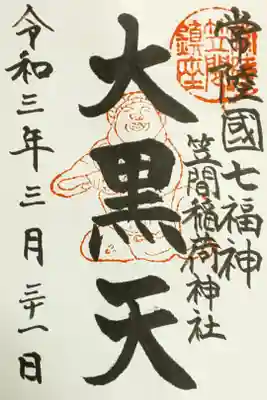 常陸國七福神
笠間稲荷神社
笠間
鎮座
大黒天
令和三年三月三十一日